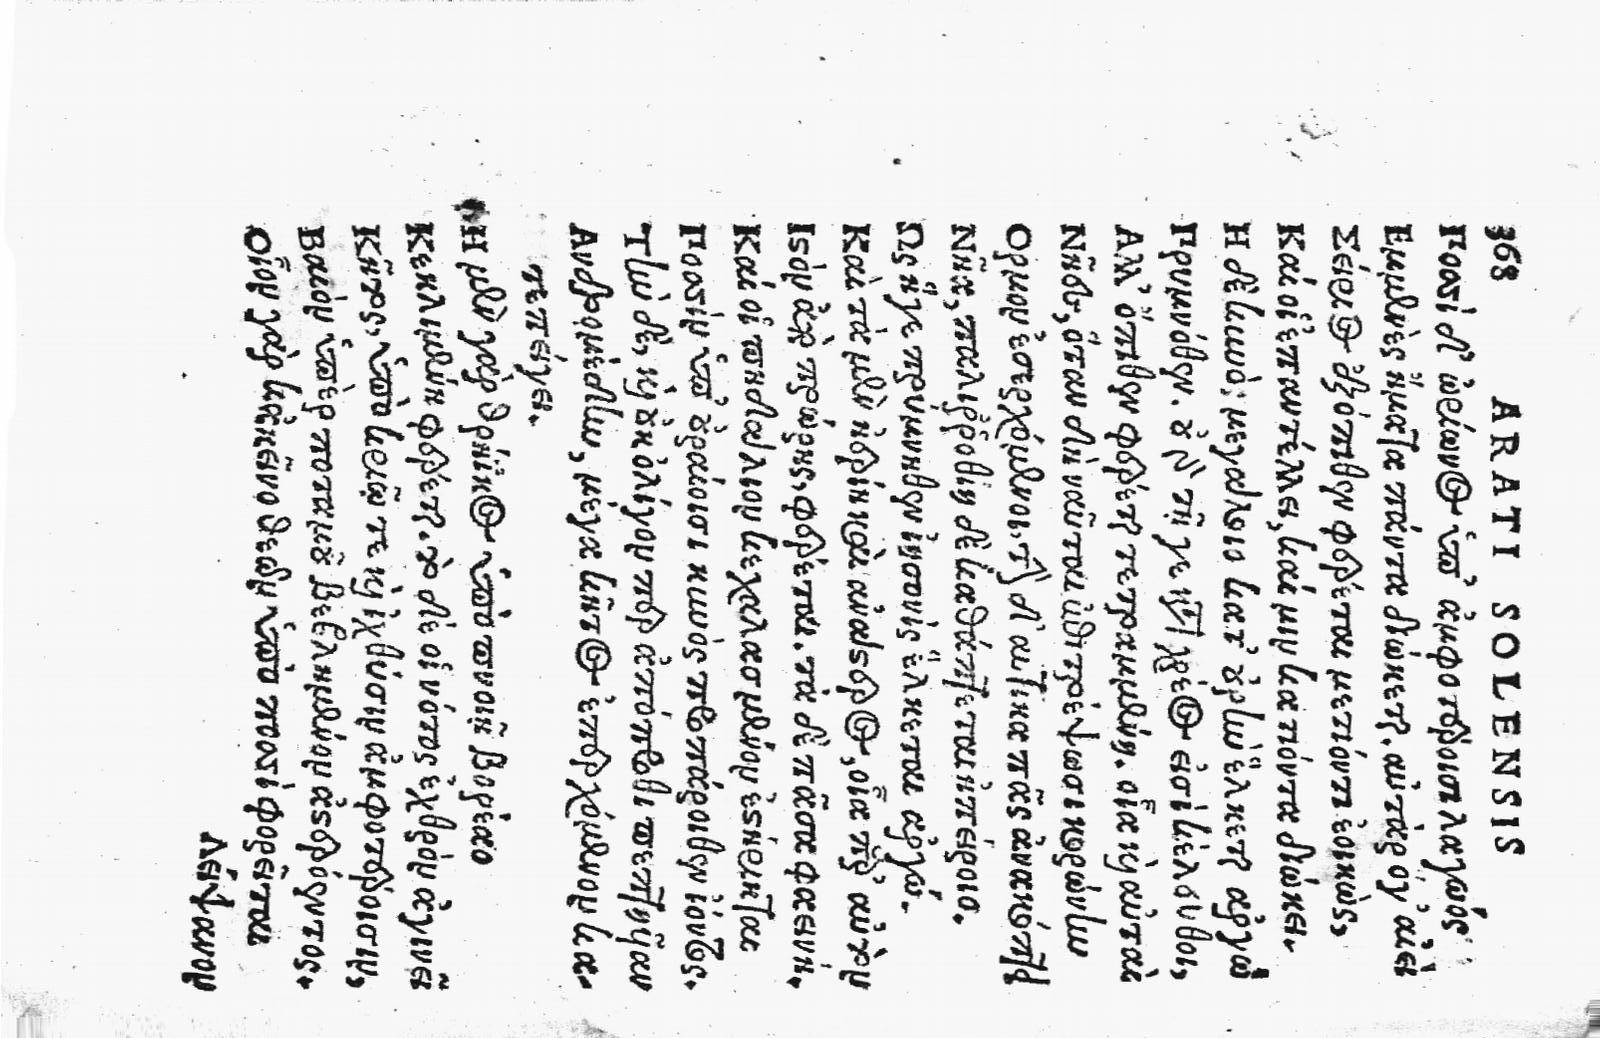 368 ARATI SOLENSIS
Ποσσὶ δ' ὠρίωνος ὑπ' ἀμφοτέροισι λαγωός
Εμμενὲς ἤματα πάντα διώκεται. αὐτὰρ ὅγ' αἰεὶ
Σείριος ἐξόπιθεν φέρεται μετιόντι ἐοικώς,
Καί οἱ ἐπαντέλλει, καί μιν κατιόντα διώκει.
Η δὲ κυνὸς μεγάλοιο κατ' οὐρὴν ἕλκεται ἀργὼ
Πρυμνόθεν. οὐ γὰρ τῇ γε κατὰ χρέος εἰσὶ κέλευθοι,
Αλλ' ὄπιθεν φέρεται τετραμμένη. οἷα καὶ αὐταὶ
Νῆες, ὅταν δὴ ναῦται ἐπιστρέψωσι κορώνην
Ορμον ἐσερχόμενοι. τὴν δ' αὐτίκα πᾶς ἀνακόπτει
Νῆα, παλιῤῥοθίη δὲ καθάπτεται ἠπείροιο.
Ως ἥγε πρύμνηθεν ἰησονὶς ἕλκεται ἀργώ.
Καὶ τὰ μὲν ἠερίη καὶ ἀνάστερος, οἷα παρ' αὐτὸν
Ιστὸν ἀπὸ πρώρης, φέρεται. τὰ δὲ πᾶσα φαεινή.
Καί οἱ πηδάλιον κεχαλασμένον ἐστήρικται
Ποσσὶν ὑπ' οὐραίοισι κυνὸς προπάροιθεν ἰόντος.
Τὴν δὲ, καὶ οὐκ ὀλίγον περ ἀπόπροθι πεπτηῦῖαν
Ανδρομέδην, μέγα κῆτος ἐπερχόμενον κα-
τεπείγει.
Η μὲν γὰρ θρήϊκος ὑπὸ πνοιῇ βορέαο
Κεκλιμένη φέρεται. τὸ δέ οἱ νότος ἐχθρὸν ἀγινεῖ
Κῆτος, ὑπὸ κριῷ τε καὶ ἰχθύσιν ἀμφοτέροισιν,
Βαιὸν ὑπὲρ ποταμοῦ βεβλημένον ἀστερόεντος.
Οἷον γὰρ κἀκεῖνο θεῶν ὑπὸ ποσσὶ φορεῖται
Λείψανον